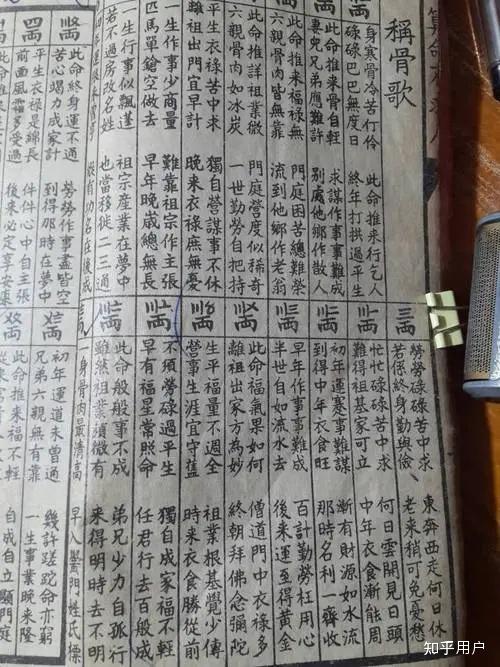 稱骨歌
身寒骨冷苦行伶 此命推來行乞人
碌碌巴巴無度日 終年打拱過平生
此命推來骨自輕 求謀作事事難成
妻兒兄弟應難許 別處他鄉作散人
此命推來福祿無 門庭困苦總難榮
六親骨肉皆無靠 流到他鄉作老翁
此命推詳祖業微 門庭營度似稀奇
六親骨肉如冰炭 一世勤勞自把持
平生衣祿苦中求 獨自營謀事不休
離祖出門宜早計 晚來衣祿庶無憂
一生作事少商量 難靠祖宗作主張
匹馬單鎗空做去 早年晚歲總無長
一生行事似飄蓬 祖宗產業在夢中
若不過房改名姓 也當移徙二三通
有功名在後成
此命終身運不通 勞勞作事盡皆空
苦心竭力成家計 到得那時在夢中
平生衣祿是綿長 件件心中自主張
前面風霜多受過 後來必定享安康
三兩
勞勞碌碌苦中求 東奔西走何日休
若係終身勤與儉 老來稍可免憂愁
忙忙碌碌苦中求 何日雲開見日頭
難得祖基家可立 中年衣食漸能周
初年運蹇事難謀 漸有財源如水流
到得中年衣食旺 那時名利一齊收
早年作事事難成 百計勤勞枉用心
半世自如流水去 後來運至得黃金
此命福氣果如何 僧道門中衣祿多
離祖出家方為妙 終朝拜佛念彌陀
生平福量不週全 祖業根基覺少傳
營事生涯宜守舊 時來衣食勝從前
不須勞碌過平生 獨自成家福不輕
早有福星常照命 任君行去百般成
此命般般事不成 弟兄少力自孤行
雖然祖業須微有 來得明時去不明
身骨肉最清高 早入黌門姓氏標
初年運道未曾通 幾許蹉跎命亦窮
兄弟六親無有靠 一生事業晚來隆
此命推來福不輕 自成自立顯門庭
知乎用户